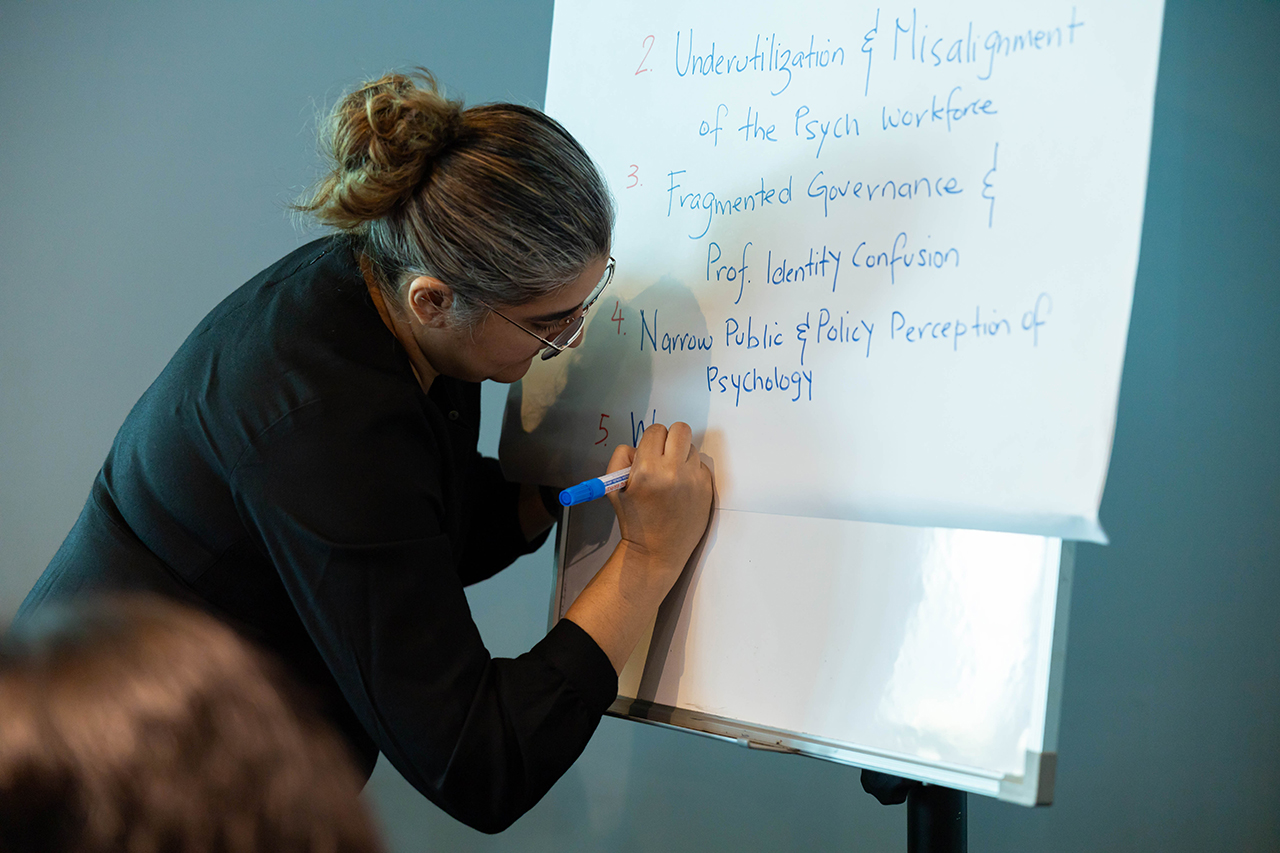 2. Underutilization & Misalignment
of the Psych Workforce
3. Fragmented Governance &
Prof. Identity Confusion
4. Narrow Public & Policy Perception of
Psychology
5. W